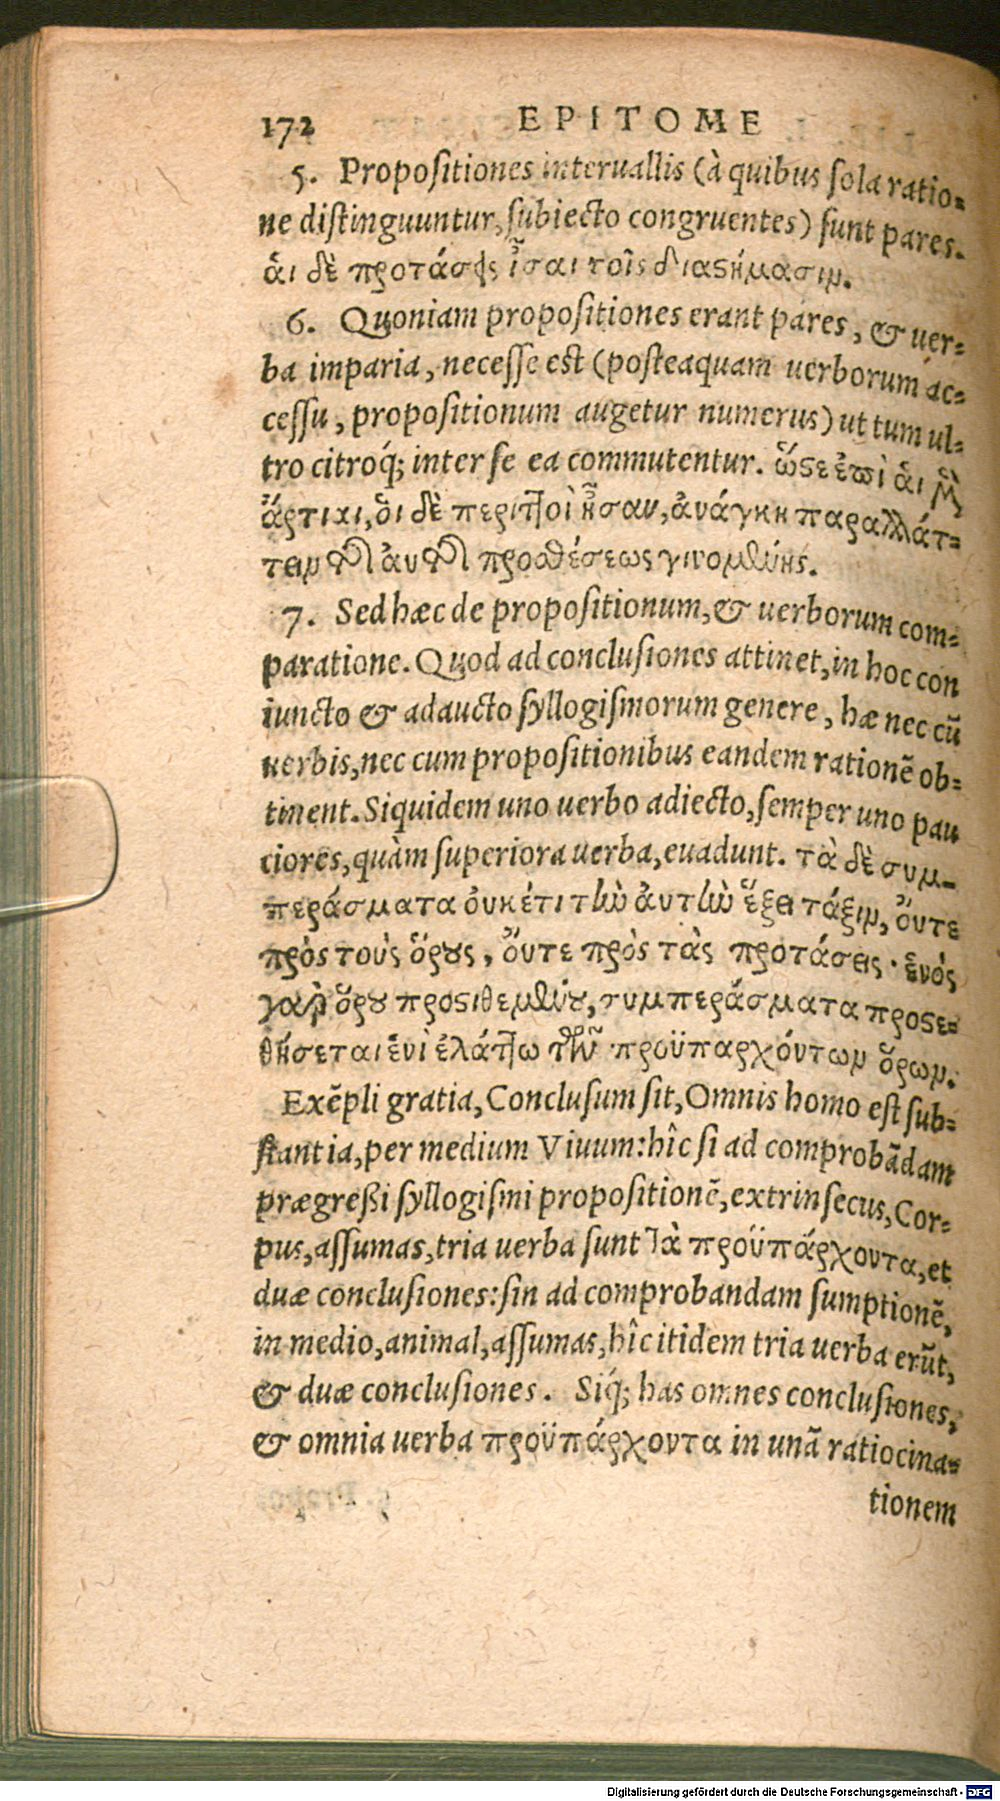 172 EPITOME
5. Propoſitiones interuallis (à quibus ſola ratio-
ne diſtinguuntur, ſubiecto congruentes) ſunt pares.
ἁι δὲ προτάσεις ἶσαι τοῖς διαςήμασιμ.
6. Quoniam propoſitiones erant pares, & uer-
ba imparia, neceſſe est (poſteaquam uerborum ac-
ceſſu, propoſitionum augetur numerus) ut tum ul-
tro citroq́; inter ſe ea commutentur. ὥςε ἐπὶ ἁι μὲν
ἄρτιαι, ὁι δὲ περιττοὶ ἦσαν, ἀνάγκη παραλλάτ-
τειμ τῆς ἀυτῆς προσθέσεως γινομένης.
7. Sed hæc de propoſitionum, & uerborum com-
paratione. Quod ad concluſiones attinet, in hoc con
iuncto & adaucto ſyllogiſmorum genere, hæ nec cũ
uerbis, nec cum propoſitionibus eandem rationẽ ob-
tinent. Siquidem uno uerbo adiecto, ſemper uno pau
ciores, quàm ſuperiora uerba, euadunt. τὰ δὲ συμ-
περάσματα ὀυκέτι τὴν ἀυτὴν ἕξει τάξιμ, ὄυτε
πρὸς τοὺς ὅρους, ὄυτε πρὸς τὰς προτάσεις. ἑνὸς
γὰρ ὅρου προςιθεμένου, συμπεράσματα προςε-
θήσεται ἑνὶ ἐλάττω τῶν προϋπαρχόντωμ ὅρωμ.
Exẽpli gratia, Concluſum ſit, Omnis homo eſt ſub-
ſtantia, per medium Viuum: hîc ſi ad comprobãdam
prægreßi ſyllogiſmi propoſitionẽ, extrinſecus, Cor-
pus, aſſumas, tria uerba ſunt τὰ προϋπάρχοντα, et
duæ concluſiones: ſin ad comprobandam ſumptionẽ,
in medio, animal, aſſumas, hîc itidem tria uerba erũt,
& duæ concluſiones. Siq́; has omnes concluſiones,
& omnia uerba προϋπάρχοντα in unã ratiocina-
tionem
Digitalisierung gefördert durch die Deutsche Forschungsgemeinschaft - DFG